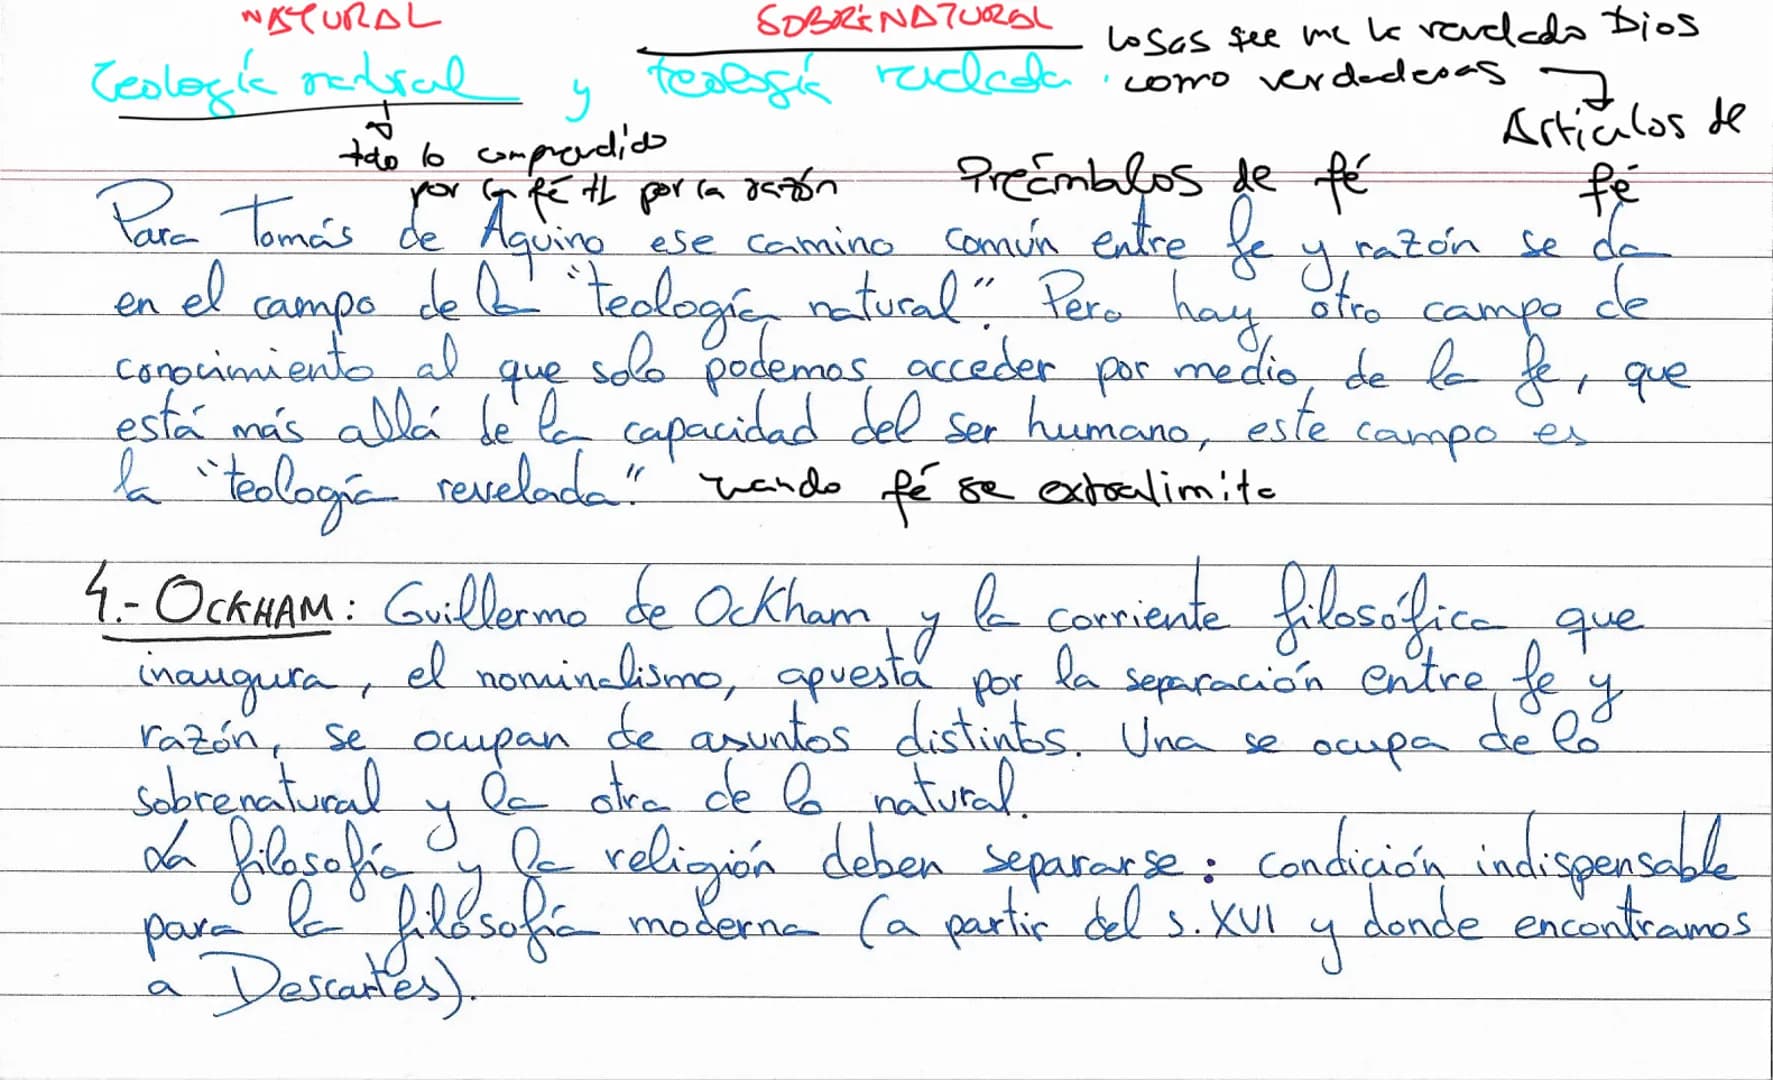 NATURAL SOBRENATURAL
Cosas que me ha revelado Dios
Teología natural y teología revelada como verdaderas
Artículos de
fé
tdo lo comprendido
por la fé tb por la razón
Preámbulos de fé
Para Tomás de Aquino ese camino común entre fe y razón se da
en el campo de la "teología natural". Pero hay otro campo de
conocimiento al que solo podemos acceder por medio de la fe, que
está más allá de la capacidad del ser humano, este campo es
la "teología revelada". cuando fé se extralimita
4.- OCKHAM: Guillermo de Ockham y la corriente filosófica que
inaugura, el nominalismo, apuesta por la separación entre fe y
razón, se ocupan de asuntos distintos. Una se ocupa de lo
sobrenatural y la otra de lo natural.
La filosofía y la religión deben separarse: condición indispensable
para la filosofía moderna (a partir del s. XVI y donde encontramos
a Descartes).